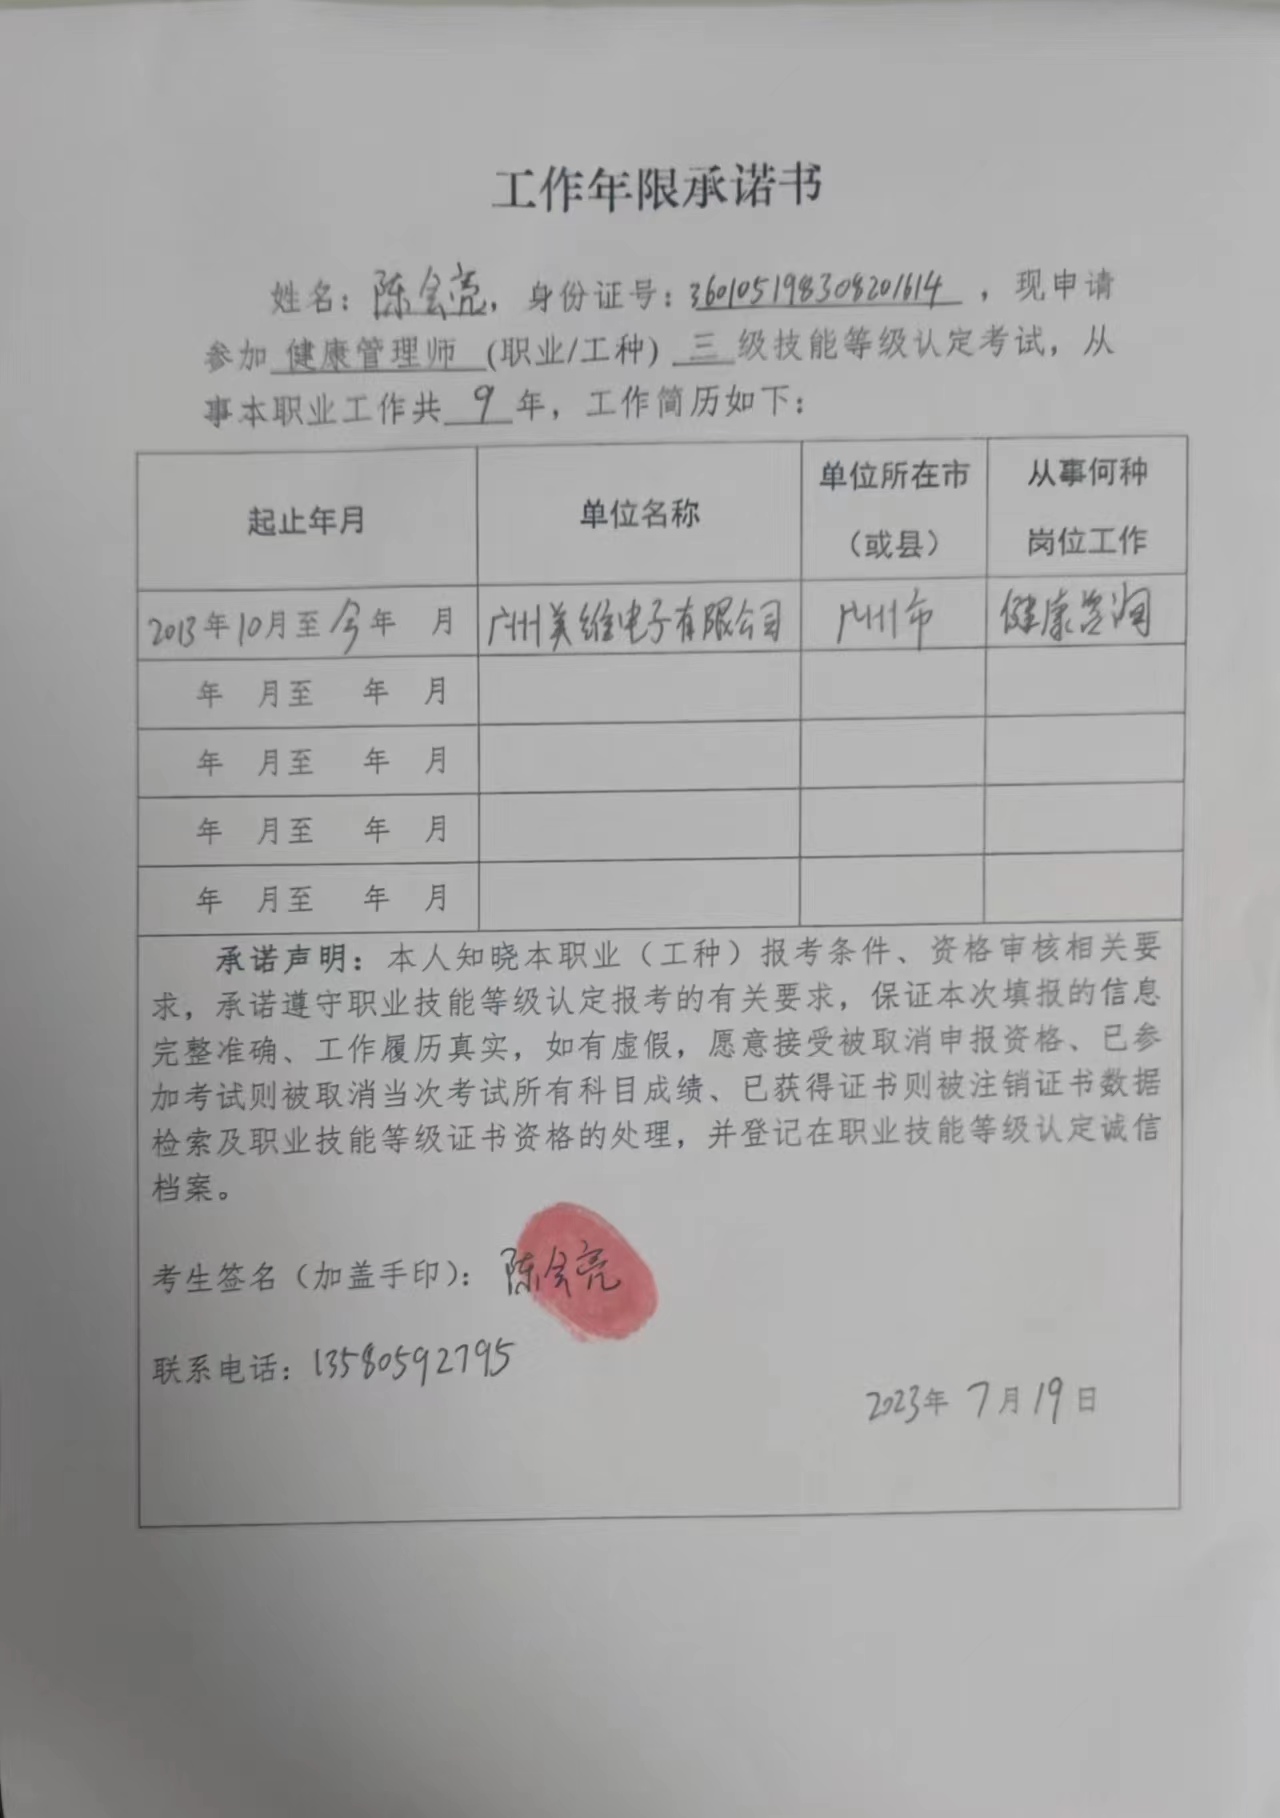 工作年限承诺书
姓名：陈会亮，身份证号：360105198308201614，现申请
参加 健康管理师 (职业/工种) 三 级技能等级认定考试，从
事本职业工作共 9 年，工作简历如下：
起止年月 单位名称 单位所在市（或县） 从事何种岗位工作
2013年10月至今年 月 广州美维电子有限公司 广州市 健康咨询
年 月至 年 月
年 月至 年 月
年 月至 年 月
年 月至 年 月
承诺声明：本人知晓本职业（工种）报考条件、资格审核相关要
求，承诺遵守职业技能等级认定报考的有关要求，保证本次填报的信息
完整准确、工作履历真实，如有虚假，愿意接受被取消申报资格、已参
加考试则被取消当次考试所有科目成绩、已获得证书则被注销证书数据
检索及职业技能等级证书资格的处理，并登记在职业技能等级认定诚信
档案。
考生签名（加盖手印）：陈会亮
联系电话：13580592795
2023年 7月19日